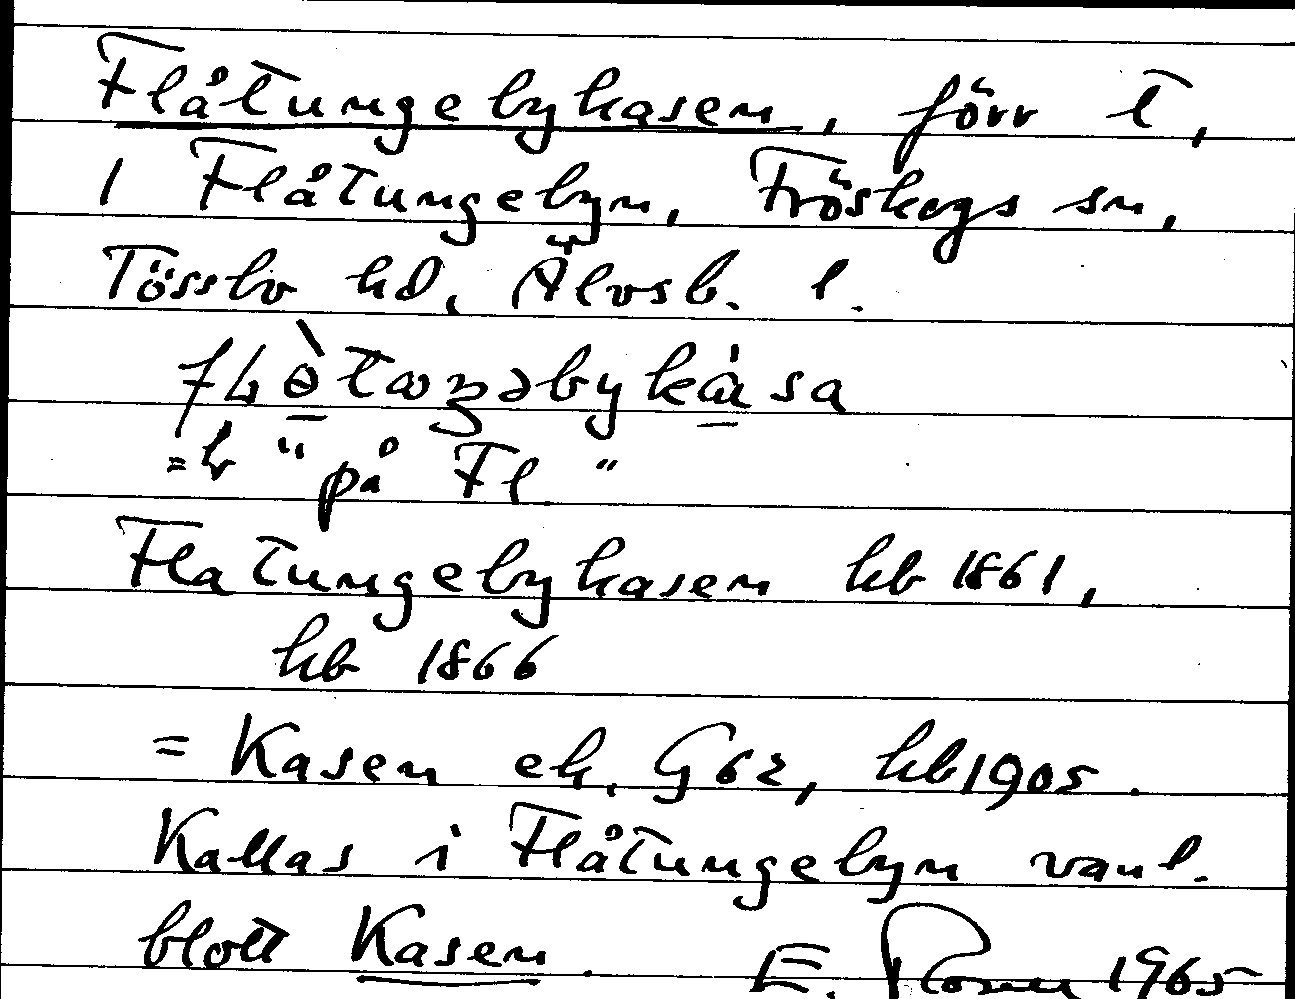 Flåtungebykasen, förr t,
1 Flåtungebyn, Fröskogs sn,
Tössbo hd, Älvsb. l.
"på Fl."
Flatungebykasen hb 1861,
hb 1866
= Kasen ek. G62, hb 1905.
Kallas i Flåtungebyn vanl.
blott Kasen. E. 1965